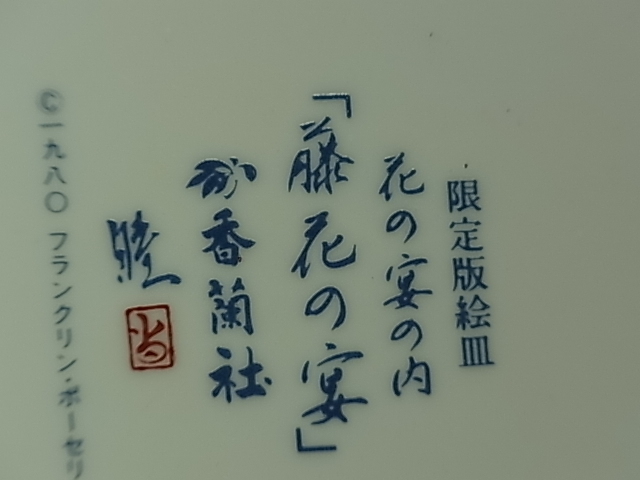 限定版絵皿
花の宴の内
「藤花の宴」
香蘭社
©一九八〇 フランクリン・ポーセリ